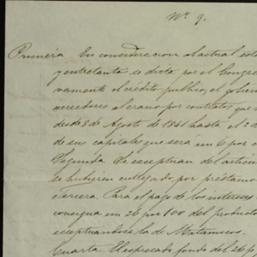 Nº 9.
Primera. En consideracion al actual est
y entretanto se dicta, por el Congre
vamente el crédito publico, el gobier
acreedores al erario por contratos que
desde 8 de Agosto de 1841 hasta el 2 d
de sus capitales que sera un 6 por c
Segunda. Se exceptuan del articu
se hubieren entregado por préstamo
Tercera. Para el pago de los intereses
consigna un 26 por 100 del product
exceptuandose la de Matamoros.
Cuarta. El espresado fondo del 26 p